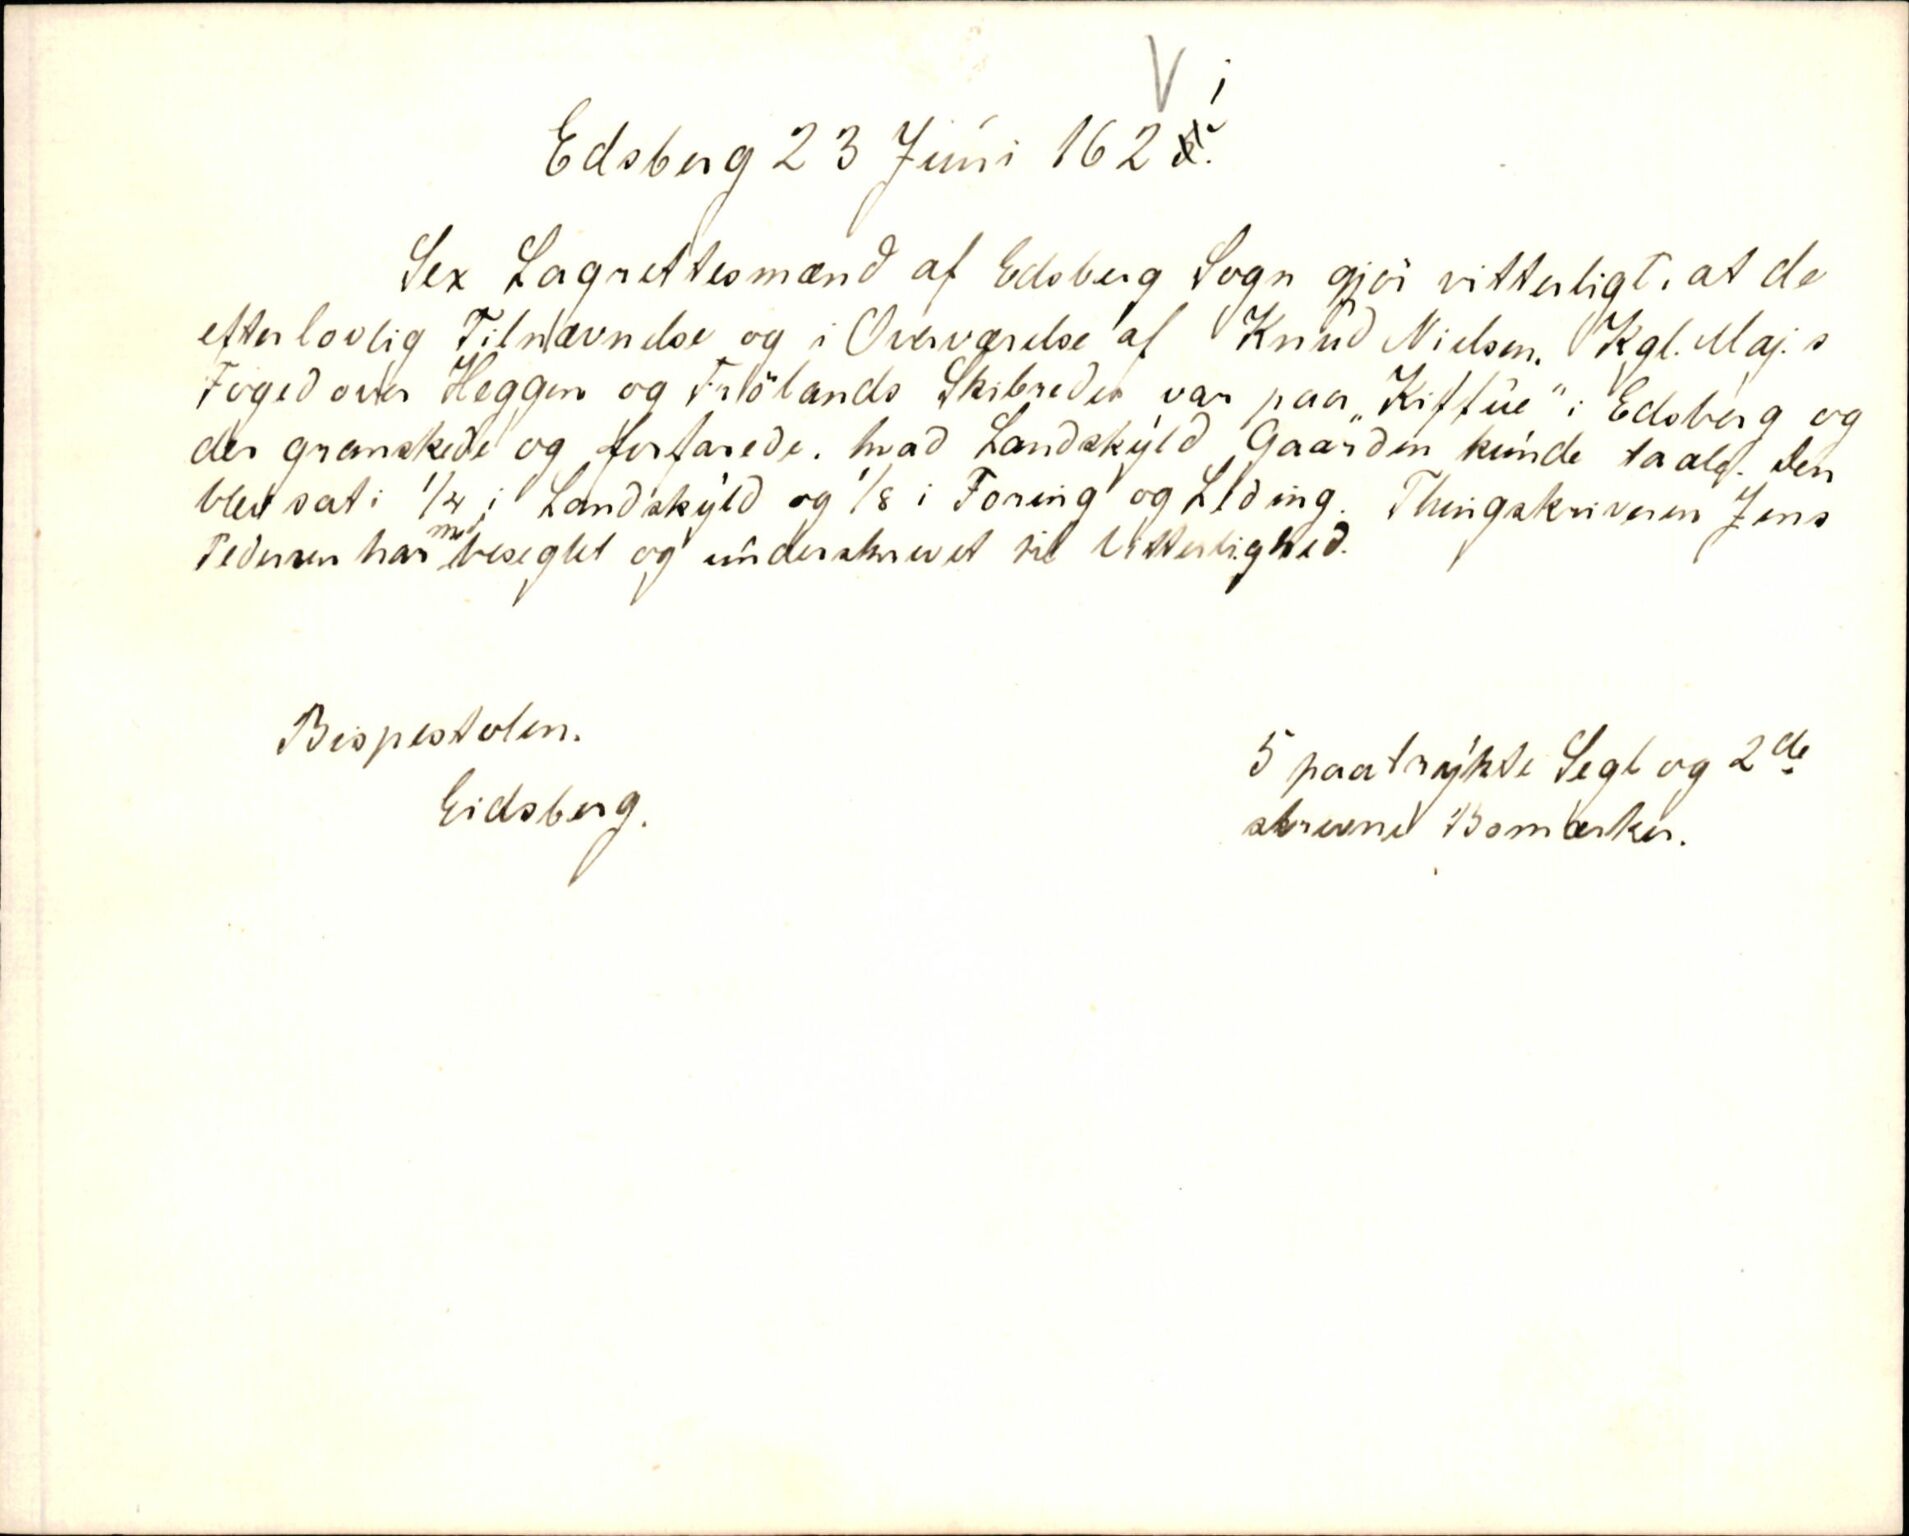 V
Edsberg 23 Juni 162
Sex Lagrettesmænd af Edsberg Sogn gjör vitterligt, at de
efter lovlig Tilnævnelse og i Overværelse af Knud Nielsen, Kgl. Maj.s
Foged over Heggen og Frölands Skibreder var paa „Kiffue" i Edsberg og
der granskede og forfarede, hvad Landskyld Gaarden kunde taale. Den
blev sat i i Landskyld og 1/8 i Foring og Leding. Thingskriveren Jens
Pedersen har med beseglet og underskrevet til Vitterlighed.
Bispestolen.
Eidsberg.
5 paatrykte Segl og 2de
skrevne Bomærker.